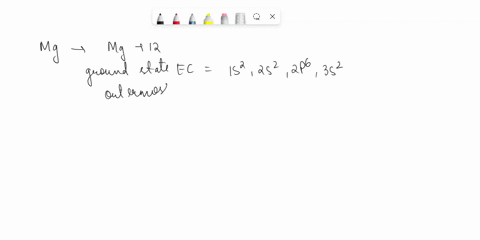 Mg → Mg → 12
ground state EC = 1s², 2s², 2P⁶, 3s²
outermos